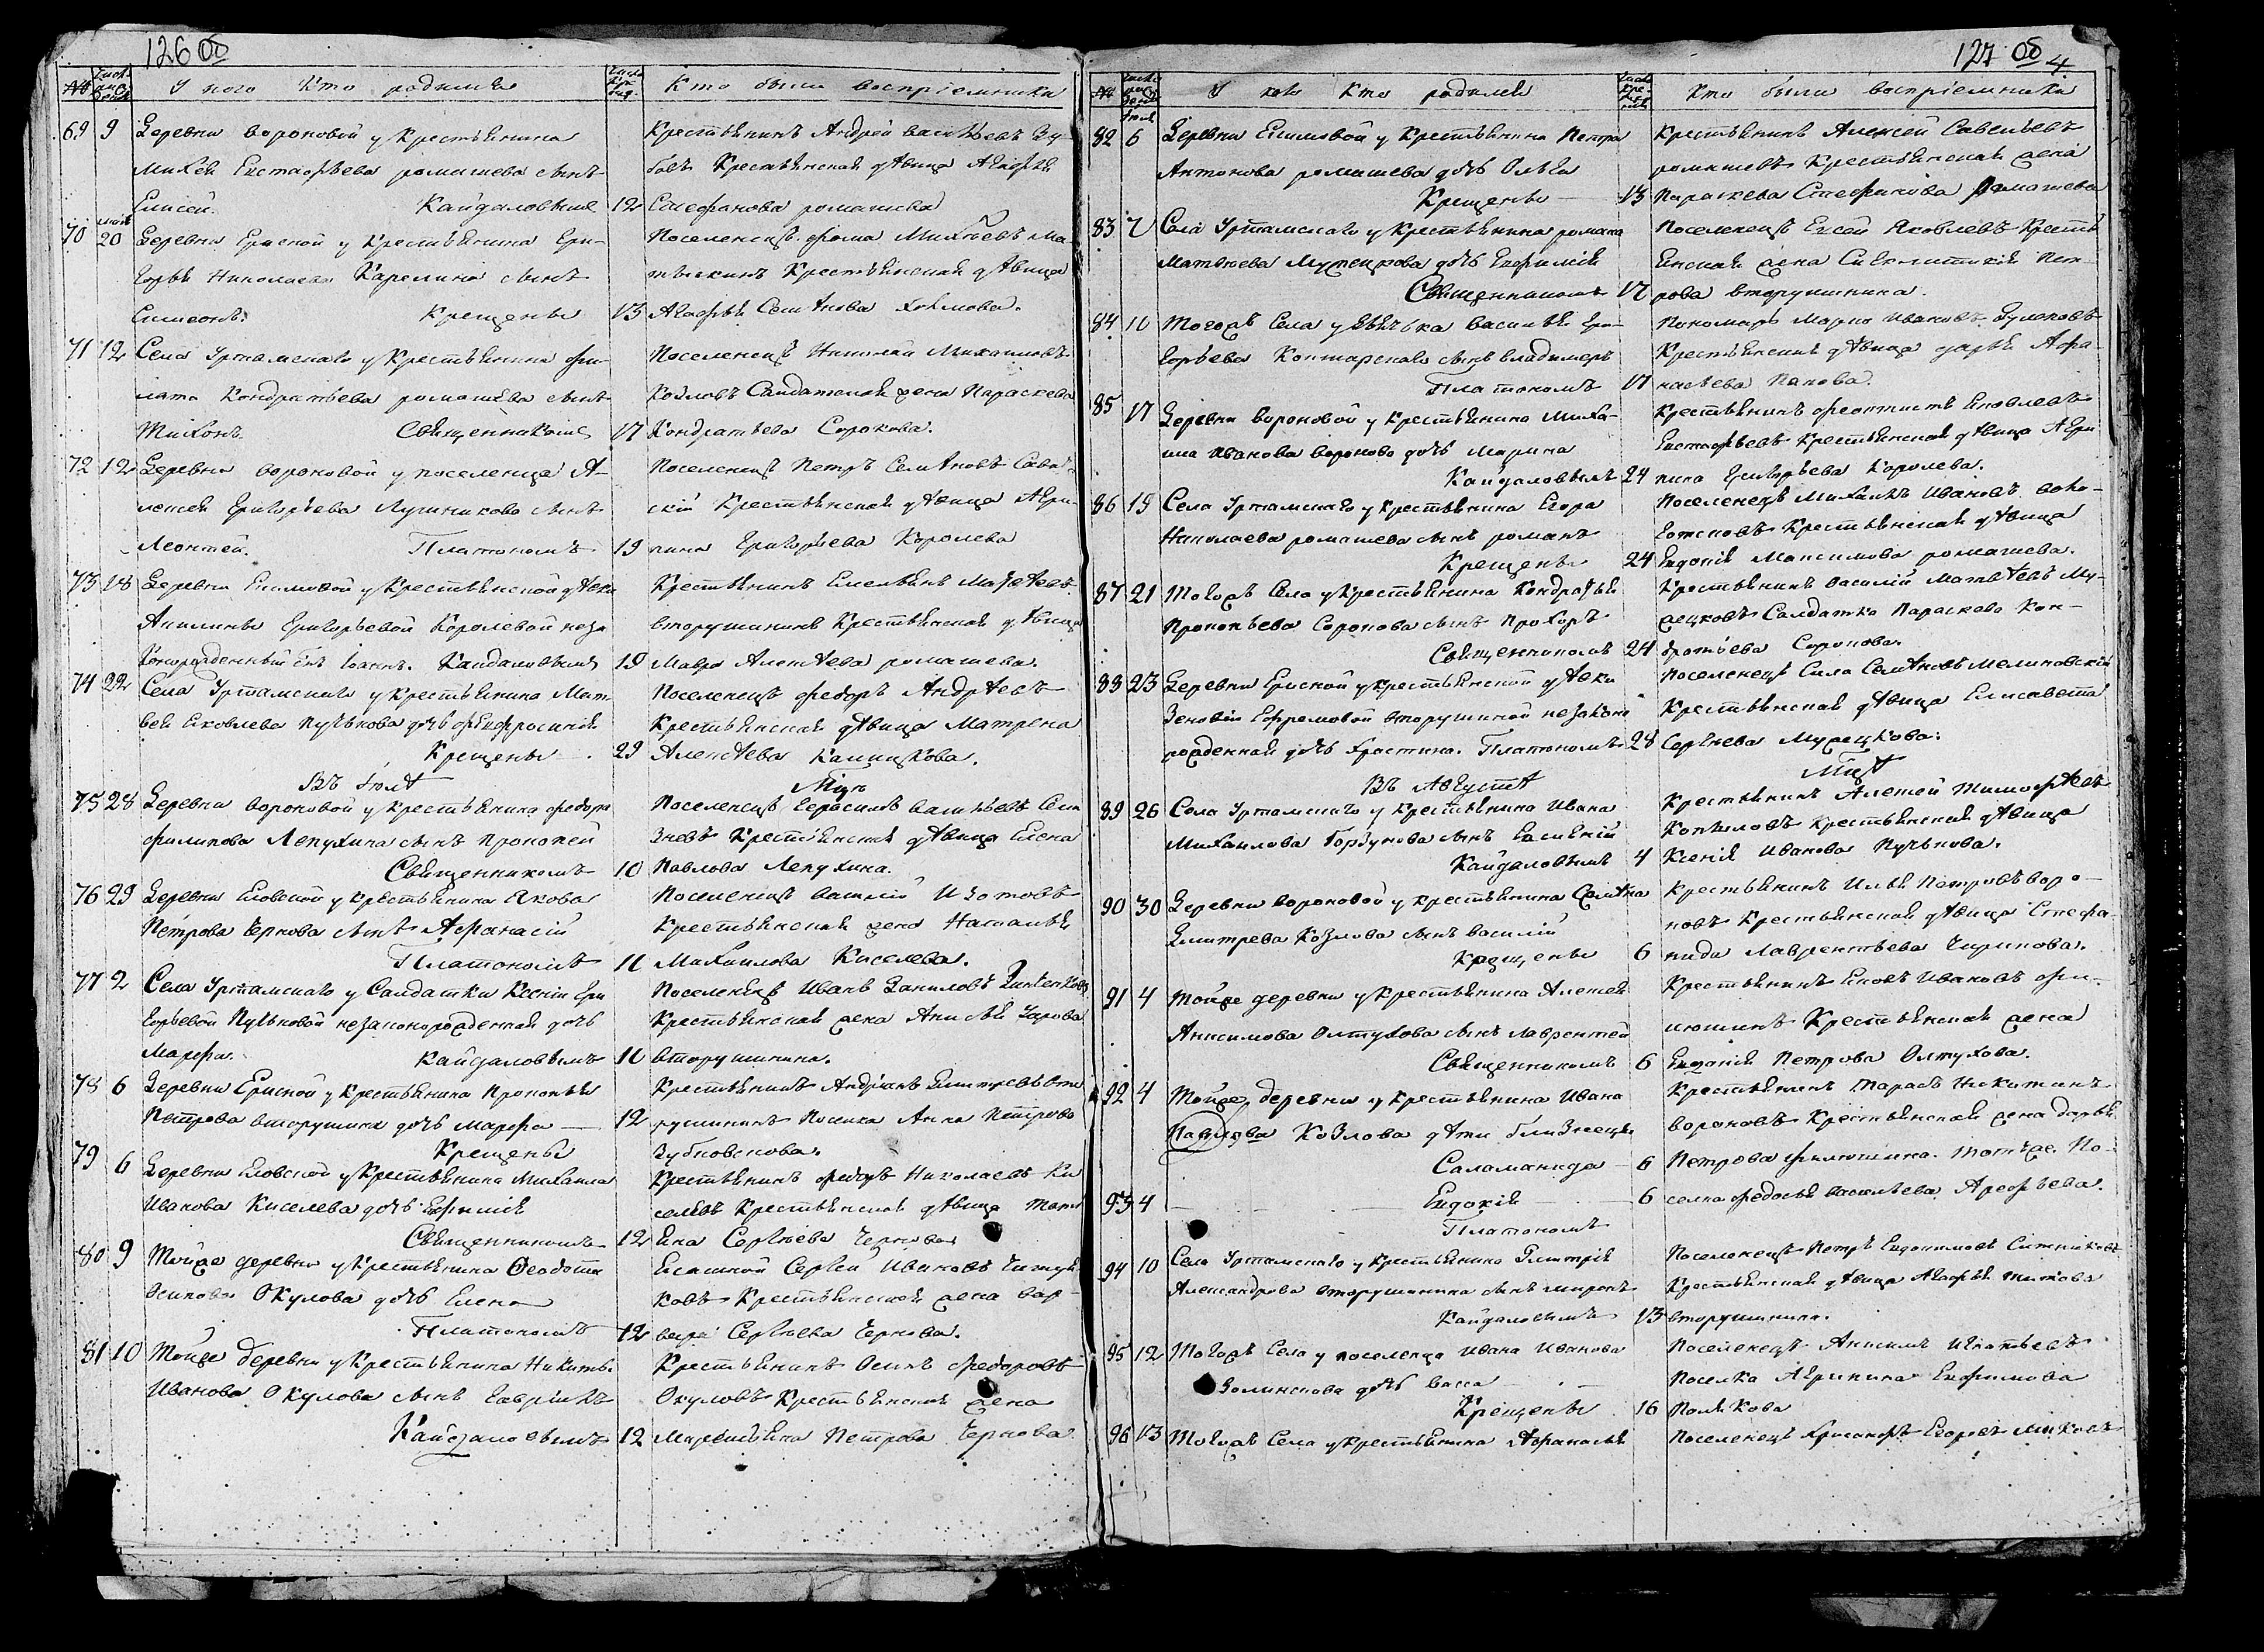 126 об
№ У кого Кто родился Кто были воспріемники
69 9 Деревни Вороновой у Крестьянина
Михея Евстафьева ромашева сынъ
Елисей. Кайдаловымъ 12
Крестьянинъ Андрей Васильевъ Зу-
бовъ Крестьянская дѣвица Агафья
Стефанова ромашева
70 20 Деревни Ерской у Крестьянина Гри-
горья Николаева Карелина сынъ
Симеонъ. Крещены 13
Поселенецъ Фома Михѣевъ Ма-
Крестьянская дѣвица
Агафья Семѣнова
71 12 Села Уртамскаго у Крестьянина Фи-
лата Кондратьева ромашева сынъ
Тихонъ. Священникомъ 17
Поселенецъ Николай Михайловъ
Козловъ Салдатская жена Параскева
Кондратьева Сорокова.
72 12 Деревни Вороновой у поселенца А-
лексея Григорьева Лучникова сынъ
Леонтей. Платономъ 19
Поселенецъ Петръ Семѣновъ Сави-
скій Крестьянская дѣвица Агри-
пина Григорьева Королева
73 18 Деревни Екимовой у Крестьянской дѣвки
Акилины Григорьевой Королевой неза
конорожденный Іоаннъ. Кайдаловымъ 19
Крестьянинъ Емельянъ Матвѣевъ
вторушинъ Крестьянская дѣвица
Мавра Алексѣева ромашева.
74 22 Села Уртамскаго у Крестьянина Мат
вея Яковлева Пучькова дочь Ефросинія
Крещены 29
Поселенецъ Федоръ Андрѣевъ
Крестьянская дѣвица Матрена
Алексѣева
Въ Іюлѣ Мцѣ
75 28 Деревни Вороновой у Крестьянина Федора
Филипова Лепухина сынъ Прокопей
Священникомъ 10
Поселенецъ Герасимъ Васильевъ
Крестьянская дѣвица Елена
Павлова Лепухина.
76 29 Деревни Еловской у Крестьянина Якова
Петрова Чернова сынъ Афанасій
Платономъ 11
Поселенецъ Василій Изотовъ
Крестьянская жена Наталья
Михайлова Киселева.
77 2 Села Уртамскаго у Салдатки Ксеніи Гри
горьевой Пучьковой незаконорожденная дочь
Марфа. Кайдаловымъ 11
Поселенецъ Иванъ Даниловъ
Крестьянская жена Анисья
вторушинина.
78 6 Деревни Ерской у Крестьянина Прокопья
Петрова вторушина дочь Марфа — 12
Крещены
Крестьянинъ Андріанъ Дмитревъ вто
рушининъ Поселка Анна Петрова
Зубковскова.
79 6 Деревни Еловской у Крестьянина Михаила
Иванова Киселева дочь Ефимія
Священникомъ 12
Крестьянинъ Федоръ Николаевъ Ки
селевъ Крестьянская дѣвица Тать
яна Сергѣева Чернова
80 9 Тойже деревни у Крестьянина Феодота
Осипова Окулова дочь Елена
Платономъ 12
Ясашной Сергѣй Ивановъ
ковъ Крестьянская жена Вар-
вара Сергѣева Чернова.
81 10 Тойже деревни у Крестьянина Никиты
Иванова Окулова сынъ Гавріилъ
Кайдаловымъ 12
Крестьянинъ Осипъ Федоровъ
Окуловъ Крестьянская жена
Маремьяна Петрова Чернова
127 об 4
№ У кого Кто родился Кто были воспріемники
82 6 Деревни Екимовой у Крестьянина Петра
Антонова ромашева дочь Ольга
Крещены — 13
Крестьянинъ Алексей Савельевъ
ромашевъ Крестьянская жена
Параскева Стефанова ромашева
83 7 Села Уртамскаго у Крестьянина романа
Матвѣева Мурецкова дочь Евфимія
Священникомъ 17
Поселенецъ Яковлевъ Кресть
янская жена Сиклитикія Пет-
рова вторушинина.
84 11 Тогожъ Села у дьячька Василья Гри-
горьева Контарскаго сынъ Владимеръ
Платономъ 17
Пономарь Марко Ивановъ
Крестьянская дѣвица Дарья Афа-
насьева Папова.
85 17 Деревни Вороновой у Крестьянина Миха-
ила Иванова Воронова дочь Марина
Кайдаловымъ 24
Крестьянинъ Феоктистъ Яковлевъ
Евстафьевъ Крестьянская дѣвица Агри
пина Григорьева Королева.
86 19 Села Уртамскаго у Крестьянина Егора
Николаева ромашева сынъ романъ
Крещены 24
Поселенецъ Михаилъ Ивановъ
Крестьянская дѣвица
Евдокія Максимова ромашева.
87 21 Тогожъ Села у Крестьянина Кондратья
Прокопьева Сорокова сынъ Прохоръ
Священникомъ 24
Крестьянинъ Василій Матвѣевъ Му-
рецковъ Салдатка Параскева Кон-
дратьева Сорокова.
88 23 Деревни Ерской у Крестьянской дѣвки
Зеновіи Ефремовой вторушиной незакон
рожденная дочь Христина. Платономъ 28
Поселенецъ Сила Семѣновъ Малиновскій
Крестьянская дѣвица Елисавета
Сергѣева Мурецкова.
Въ Августѣ Мцѣ
89 26 Села Уртамскаго у Крестьянина Ивана
Михайлова Горбунова сынъ Евгеній
Кайдаловымъ 4
Крестьянинъ Алексей Тимофѣевъ
Копыловъ Крестьянская дѣвица
Ксенія Иванова Пучькова.
90 30 Деревни Вороновой у Крестьянина Семѣна
Дмитрева Козлова сынъ Василій
Крещены 6
Крестьянинъ Илья Петровъ Воро-
новъ Крестьянская дѣвица Стефа-
нида Лаврентьева Чирикова.
91 4 Тойже деревни у Крестьянина Алексея
Анисимова Олтухова сынъ Лаврентей
Священникомъ 6
Крестьянинъ Яковъ Ивановъ Фи-
люшинъ Крестьянская жена
Евдокія Петрова Олтухова.
92 4 Тойже деревни у Крестьянина Ивана
Павлова Козлова дѣти близнецы
Саламанида — 6
Крестьянинъ Тарасъ Никитинъ
Вороновъ Крестьянская жена Дарья
Петрова Филюшина. Тотъже. По-
93 4 — Евдокія — 6
селка Федосья Васильева Арефьева.
Платономъ
94 10 Села Уртамскаго у Крестьянина Дмитрія
Александрова вторушинина сынъ Миронъ
Кайдаловымъ 13
Поселенецъ Петръ Евдокимовъ Ситниковъ
Крестьянская дѣвица Агафья Титова
вторушинина.
95 12 Тогожъ Села у поселенца Ивана Иванова
Волинскова дочь Васса —
Крещены 16
Поселенецъ Анисимъ Игнатьевъ
Поселка Агрипина Евфимова
Полякова
96 13 Тогожъ Села у Крестьянина Афанасья
Поселенецъ Хрисанфъ Егоровъ